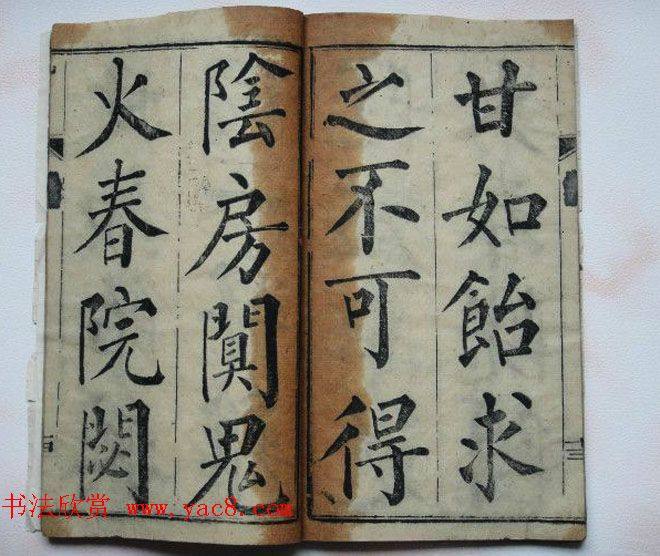 甘如飴求
之不可得
陰房闃鬼
火春院閟
书法欣赏 www.yac8.com